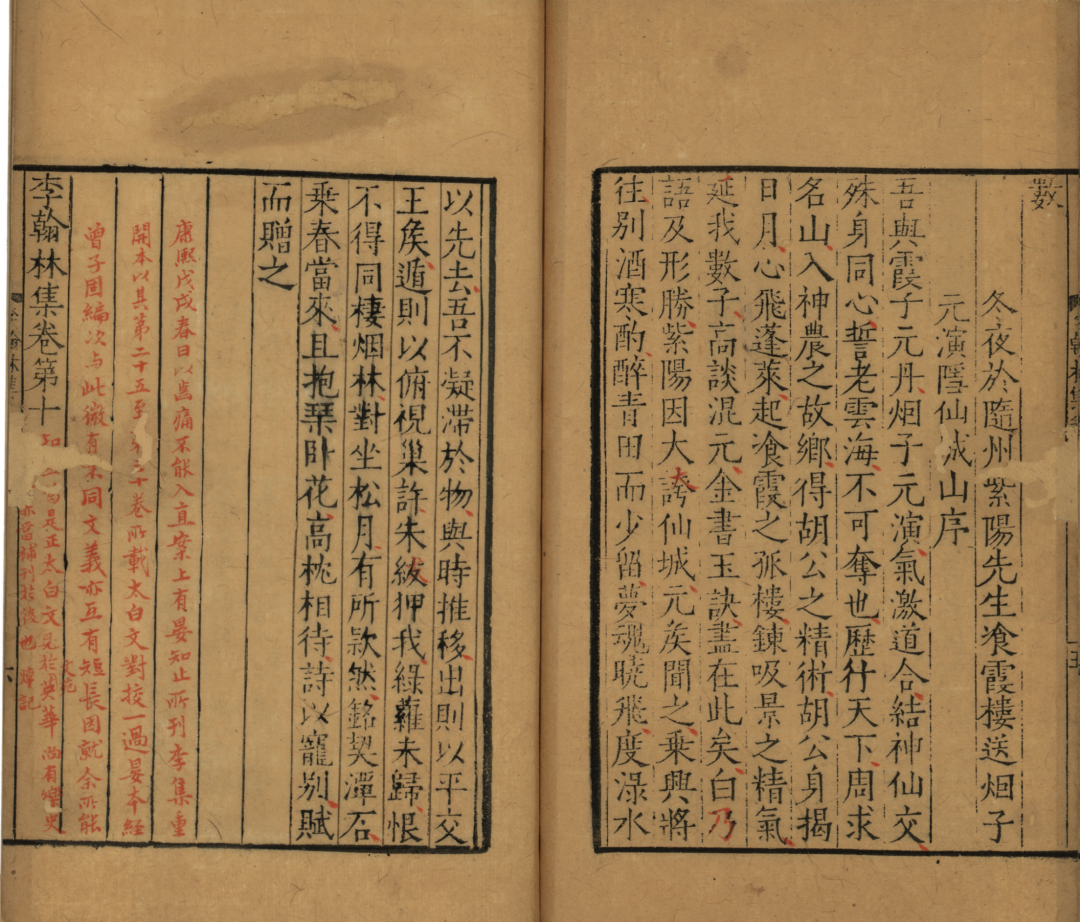 數
冬夜於隨州紫陽先生飡霞樓送烟子
元演隱仙城山序
吾與霞子元丹烟子元演氣激道合結神仙交
殊身同心誓老雲海不可奪也歷行天下周求
名山入神農之故鄉得胡公之精術胡公身揭
日月心飛蓬萊起飡霞之孤樓鍊吸景之精氣
延我數子高談混元金書玉訣盡在此矣白乃
語及形勝紫陽因大誇仙城元矦聞之乘興將
往別酒寒酌醉青田而少留夢魂曉飛度淥水
以先去吾不凝滯於物與時推移出則以平交
王矦遁則以俯視巢許朱紱狎我綠蘿未歸恨
不得同棲烟林對坐松月有所款然銘契潭石
乘春當來且抱琹卧花高枕相待詩以寵別賦
而贈之
康熙戊戌春日以寫痛不能入直案上有晏知止所刊李集重
開本以其第二十五至第三十卷所載太白文對挍一過晏本經
曾子固編次与此微有不同文義亦互有短長因就余所能
知 是正太白文見於文苑英華尚有 史
亦當補刊於後也 焯記
李翰林集卷第十